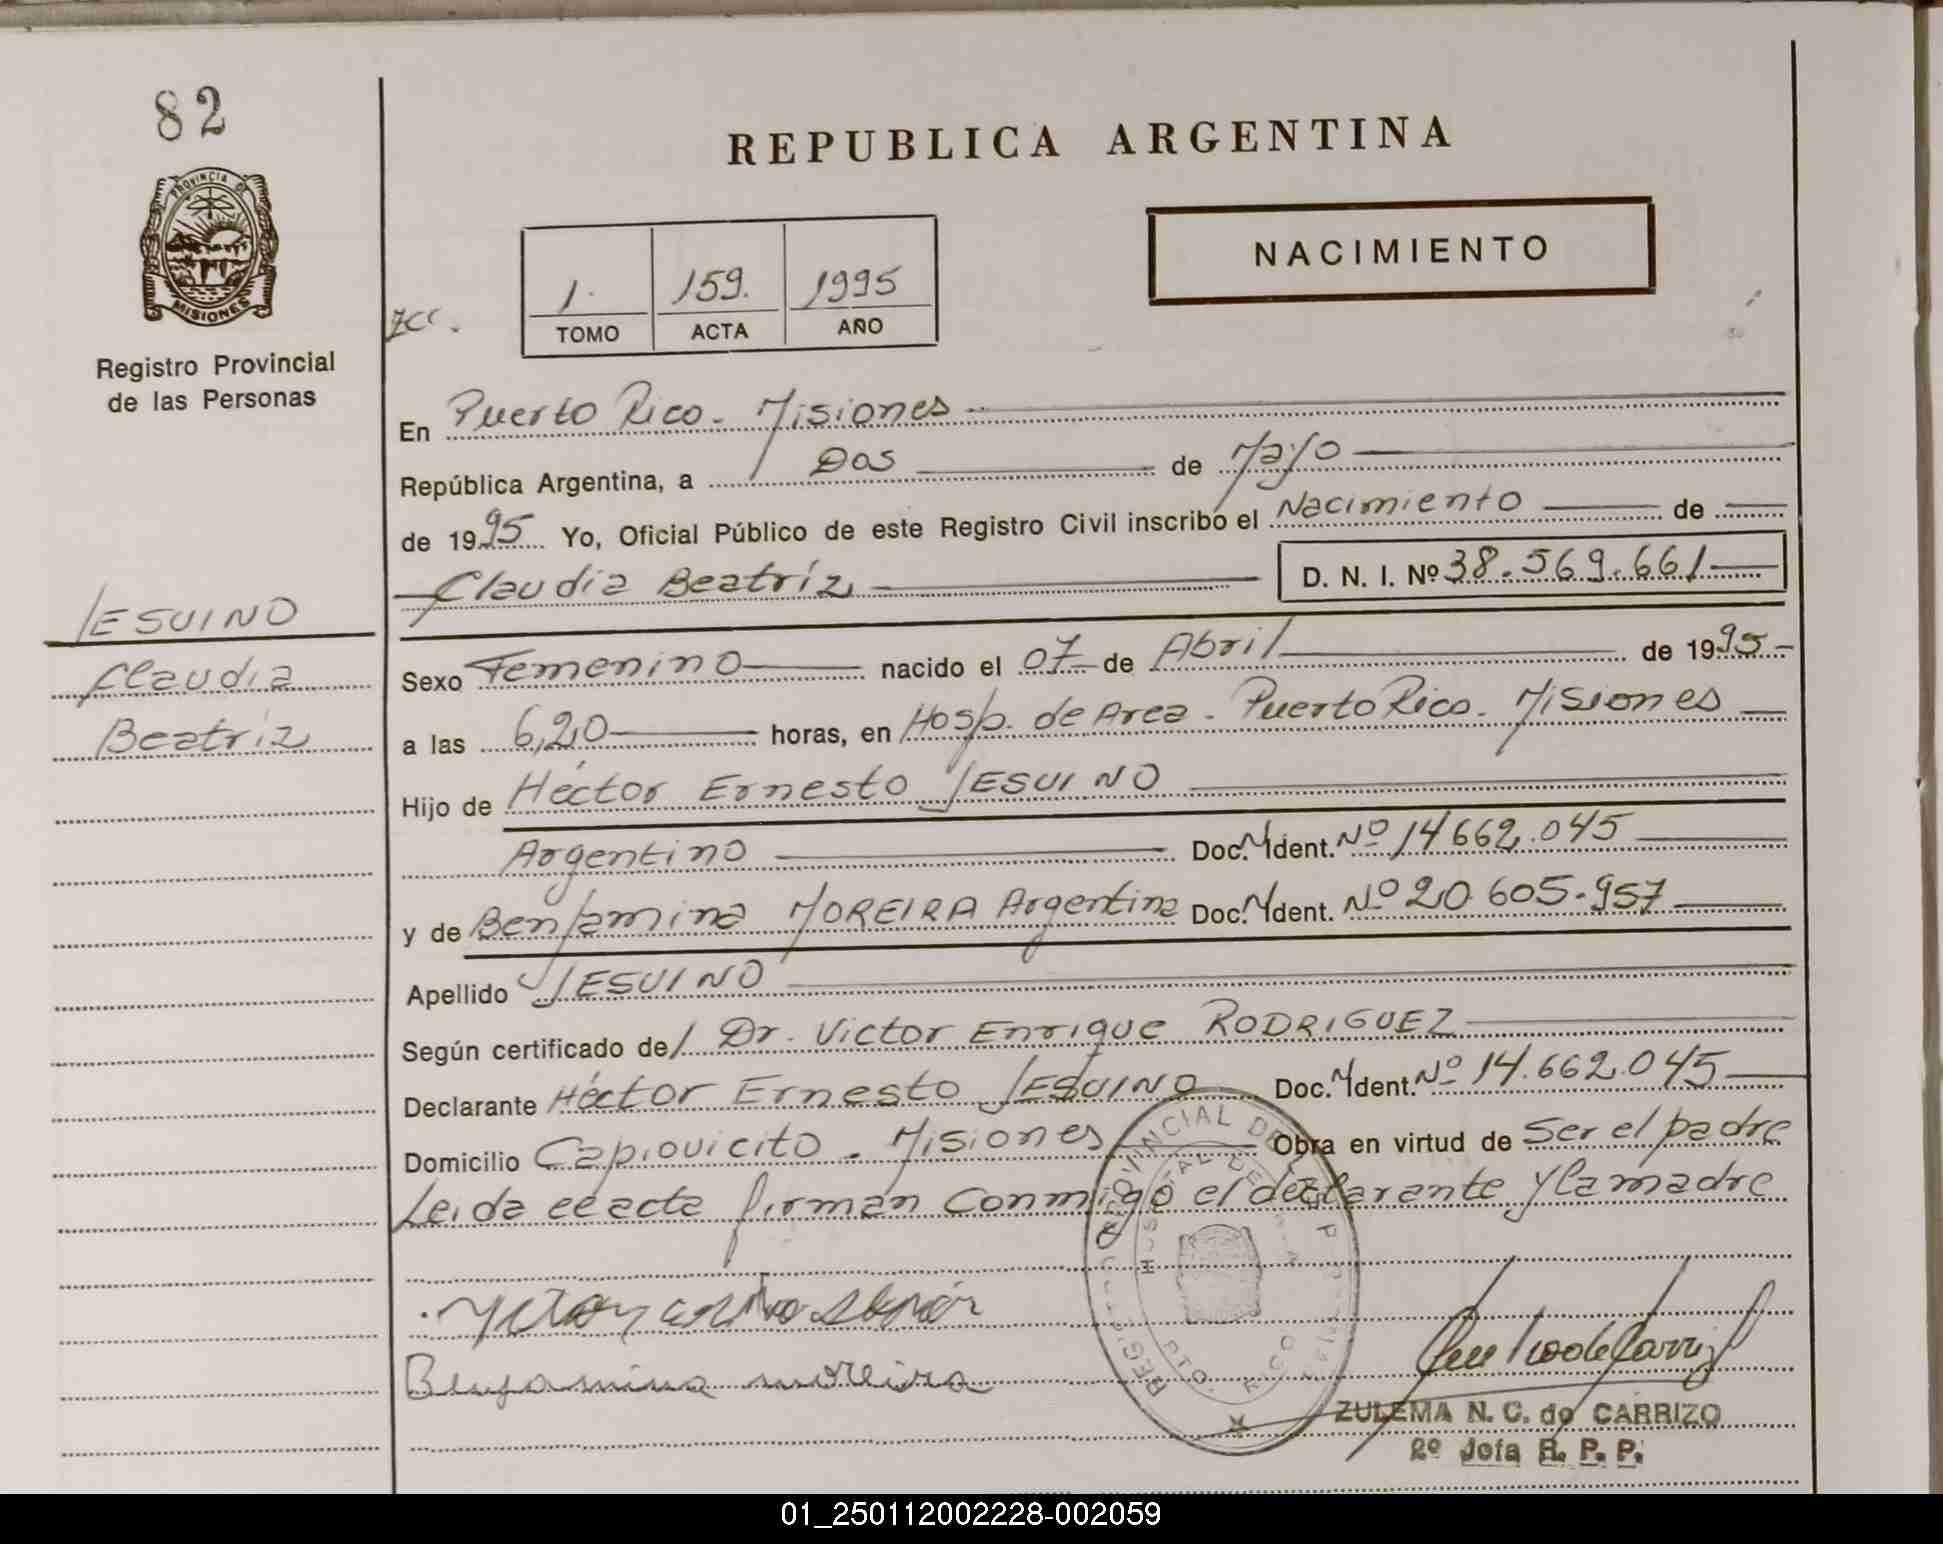 82
REPUBLICA ARGENTINA
PROVINCIA DE
MISIONES
NACIMIENTO
1. 159. 1995
TOMO ACTA AÑO
Registro Provincial
de las Personas
En Puerto Rico - Misiones
República Argentina, a Dos de Mayo
de 1995 Yo, Oficial Público de este Registro Civil inscribo el Nacimiento de
Claudia Beatríz D. N. I. Nº 38.569.661
JESUINO
Claudia
Beatríz
Sexo Femenino nacido el 07 de Abril de 1995
a las 6,20 horas, en Hosp. de Area - Puerto Rico - Misiones
Hijo de Héctor Ernesto JESUINO
Argentino Doc. M Ident. Nº 14.662.045
y de Benjamina MOREIRA Argentina Doc. M Ident. Nº 20.605.957
Apellido JESUINO
Según certificado del Dr. Victor Enrique RODRIGUEZ
Declarante Héctor Ernesto JESUINO Doc. M Ident. Nº 14.662.045
Domicilio Capiovicito - Misiones Obra en virtud de Ser el padre
Leida el acta firman conmigo el declarante y la madre
Benjamina moreira
ZULEMA N. C. de CARRIZO
2º Jefa R. P. P.
01_250112002228-002059